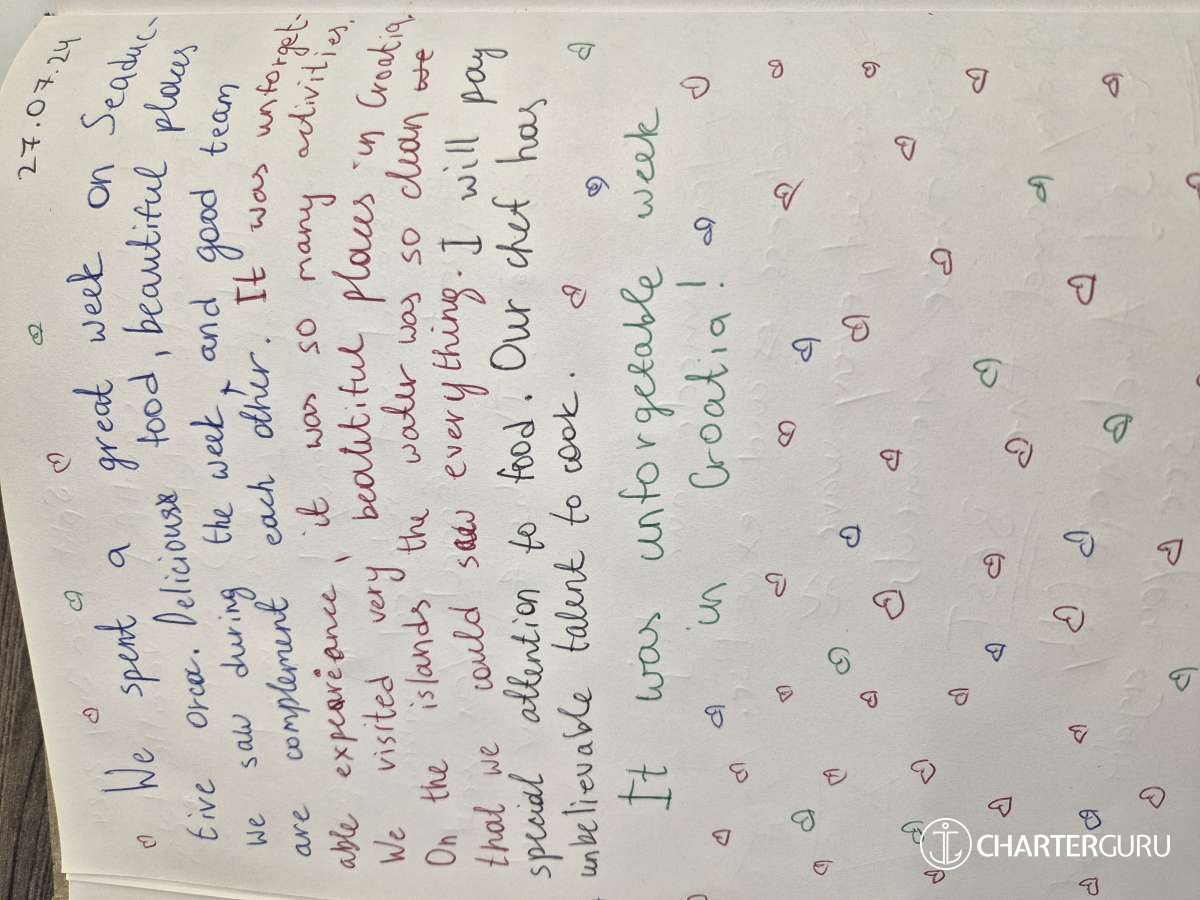 27.07.24
We spent a great week on Seaduc-
tive orca. Delicious food, beautiful places
we saw during the week, and good team
are complement each other. It was unforget-
able expereance, it was so many activities.
We visited very beatitiful places in Croatia.
On the islands the water was so clean we
that we could saw everything. I will pay
special attention to food. Our chef has
unbelievable talent to cook.
It was unforgetable week
in Croatia!
CHARTERGURU